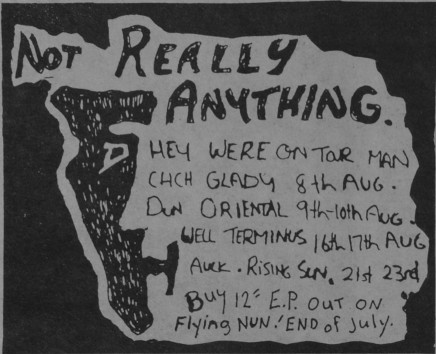 NOT REALLY
ANYTHING.
HEY WERE ON TOUR MAN
CHCH GLADY 8th AUG.
DUN ORIENTAL 9th-10th AUG.
WELL TERMINUS 16th 17th AUG
AUCK. RISING SUN. 21st 23rd
BUY 12" E.P. OUT ON
Flying NUN! END of July.